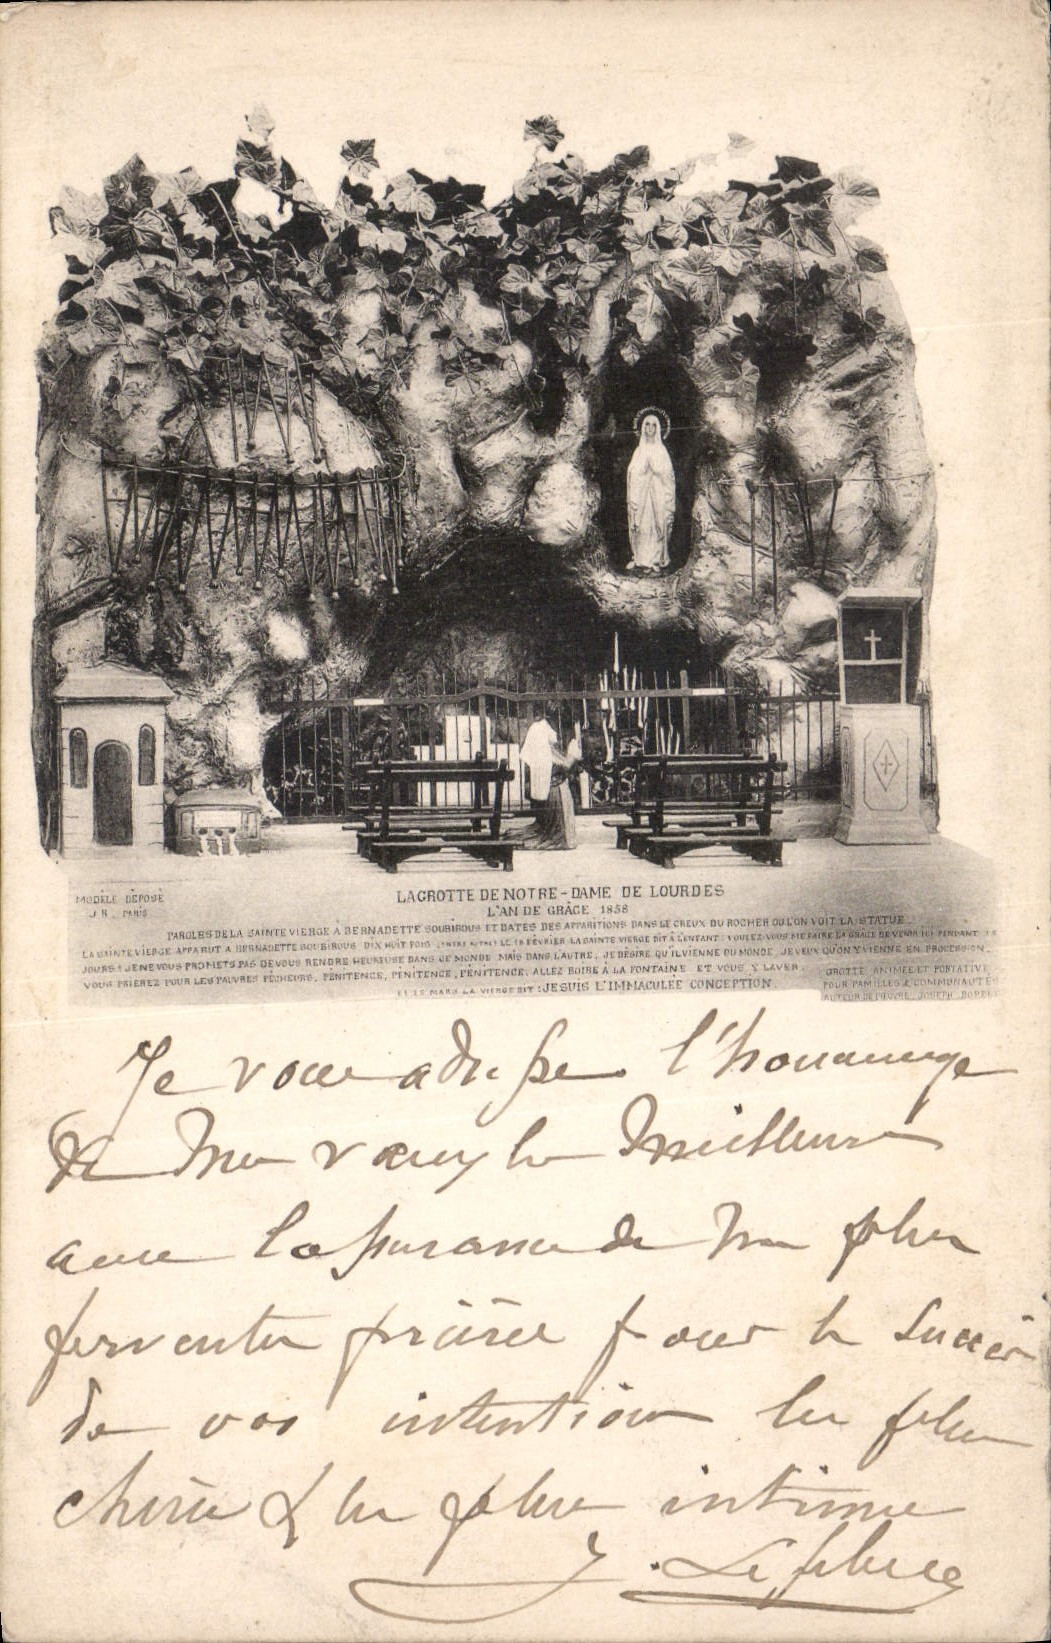 MODÈLE DÉPOSÉ
J B. PARIS
LA GROTTE DE NOTRE-DAME DE LOURDES
L'AN DE GRÂCE 1858
PAROLES DE LA SAINTE VIERGE À BERNADETTE SOUBIROUS ET DATES DES APPARITIONS DANS LE CREUX DU ROCHER OU L'ON VOIT LA STATUE
LA SAINTE VIERGE APPARUT A BERNADETTE SOUBIROUS DIX HUIT FOIS (ENTRE AUTRE) LE 18 FÉVRIER LA SAINTE VIERGE DIT À L'ENFANT: VOULEZ-VOUS ME FAIRE LA GRÂCE DE VENIR ICI PENDANT 15
JOURS? JE NE VOUS PROMETS PAS DE VOUS RENDRE HEUREUSE DANS CE MONDE MAIS DANS L'AUTRE, JE DÉSIRE QU'IL VIENNE DU MONDE, JE VEUX QU'ON Y VIENNE EN PROCESSION.
VOUS PRIEREZ POUR LES PAUVRES PÉCHEURS, PÉNITENCE, PÉNITENCE, PÉNITENCE, ALLEZ BOIRE À LA FONTAINE ET VOUS Y LAVER.
ET LE MARS LA VIERGE DIT: JE SUIS L'IMMACULÉE CONCEPTION
GROTTE ANIMÉE ET PORTATIVE
POUR FAMILLES & COMMUNAUTÉS
AUTEUR DE L'ŒUVRE, JOSEPH
Je vous adresse l'hommage
de mes vœux les meilleurs
avec l'assurance de mes plus
ferventes prières pour le succès
de vos intentions les plus
chères & les plus intimes
J. Lefebvre